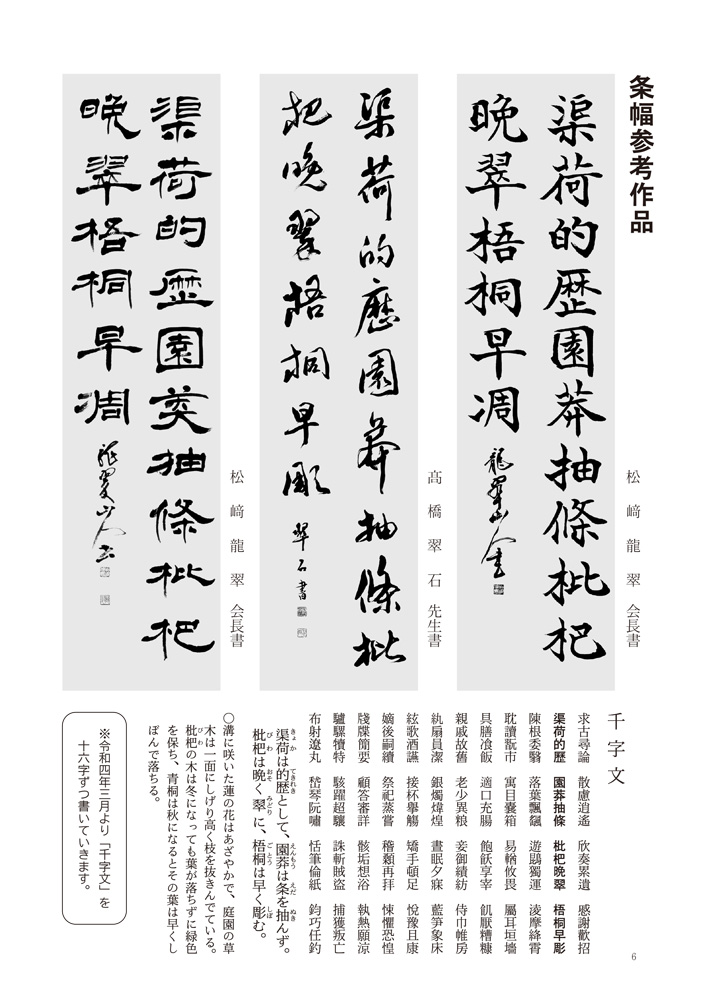 条幅参考作品
松﨑龍翠 会長書
渠荷的歴園莽抽條枇杷
晩翠梧桐早凋
龍翠山人書
髙橋翠石 先生書
渠荷的歴園莽抽條枇
杷晩翠梧桐早彫
翠石書
松﨑龍翠 会長書
渠荷的歴園莽抽條枇杷
晩翠梧桐早凋
龍翠山人書
千字文
求古尋論 散慮逍遙 欣奏累遣 感謝歡招
渠荷的歴 園莽抽條 枇杷晩翠 梧桐早彫
陳根委翳 落葉飄颻 遊鵾獨運 淩摩絳霄
耽讀翫市 寓目囊箱 易輶攸畏 屬耳垣墻
具膳飡飯 適口充腸 飽飫享宰 飢厭糟糠
親戚故舊 老少異粮 妾御績紡 侍巾帷房
紈扇員潔 銀燭煒煌 晝眠夕寐 藍笋象床
絃歌酒讌 接杯擧觴 矯手頓足 悅豫且康
嫡後嗣續 祭祀蒸嘗 稽顙再拝 悚懼恐惶
牋牒簡要 顧答審詳 骸垢想浴 執熱願涼
驢騾犢特 駭躍超驤 誅斬賊盗 捕獲叛亡
布射遼丸 嵆琴阮嘯 恬筆倫紙 鈞巧任釣
渠荷は的歴として、園莽は条を抽んず。
枇杷は晩く翠に、梧桐は早く彫む。
○溝に咲いた蓮の花はあざやかで、庭園の草
木は一面にしげり高く枝を抜きんでている。
枇杷の木は冬になっても葉が落ちずに緑色
を保ち、青桐は秋になるとその葉は早くし
ぼんで落ちる。
※令和四年三月より「千字文」を
十六字ずつ書いていきます。
6